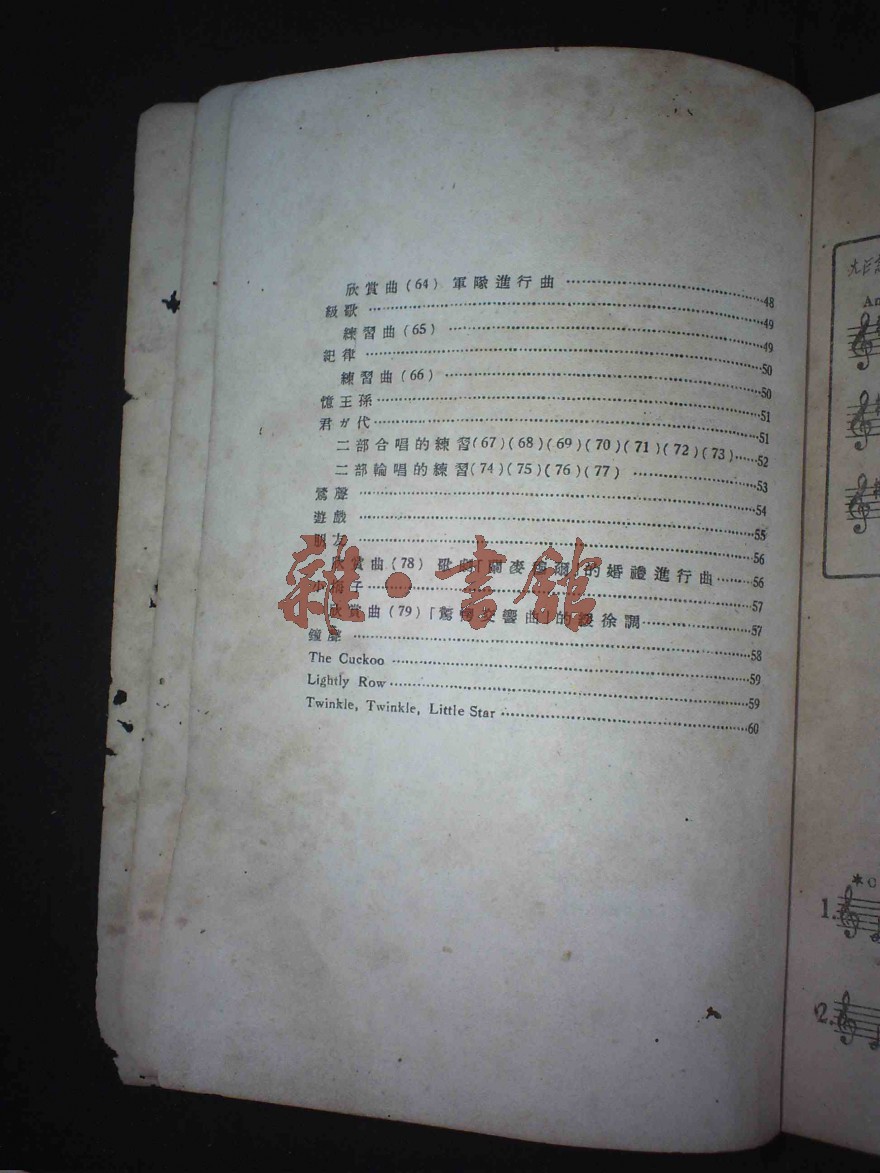 欣賞曲(64) 軍隊進行曲 ……48
級歌 ……49
練習曲(65) ……49
紀律 ……50
練習曲(66) ……50
憶王孫 ……51
君ガ代 ……51
二部合唱的練習(67)(68)(69)(70)(71)(72)(73) ……52
二部輪唱的練習(74)(75)(76)(77) ……53
鶯聲 ……54
遊戲 ……55
朋友 ……56
欣賞曲(78) 歌劇「爾麥」的婚禮進行曲 ……56
小梅子 ……57
欣賞曲(79)「驚愕交響曲」的緩徐調 ……57
鐘聲 ……58
The Cuckoo ……59
Lightly Row ……59
Twinkle, Twinkle, Little Star ……60
雜·書館
An
*C
1.
2.